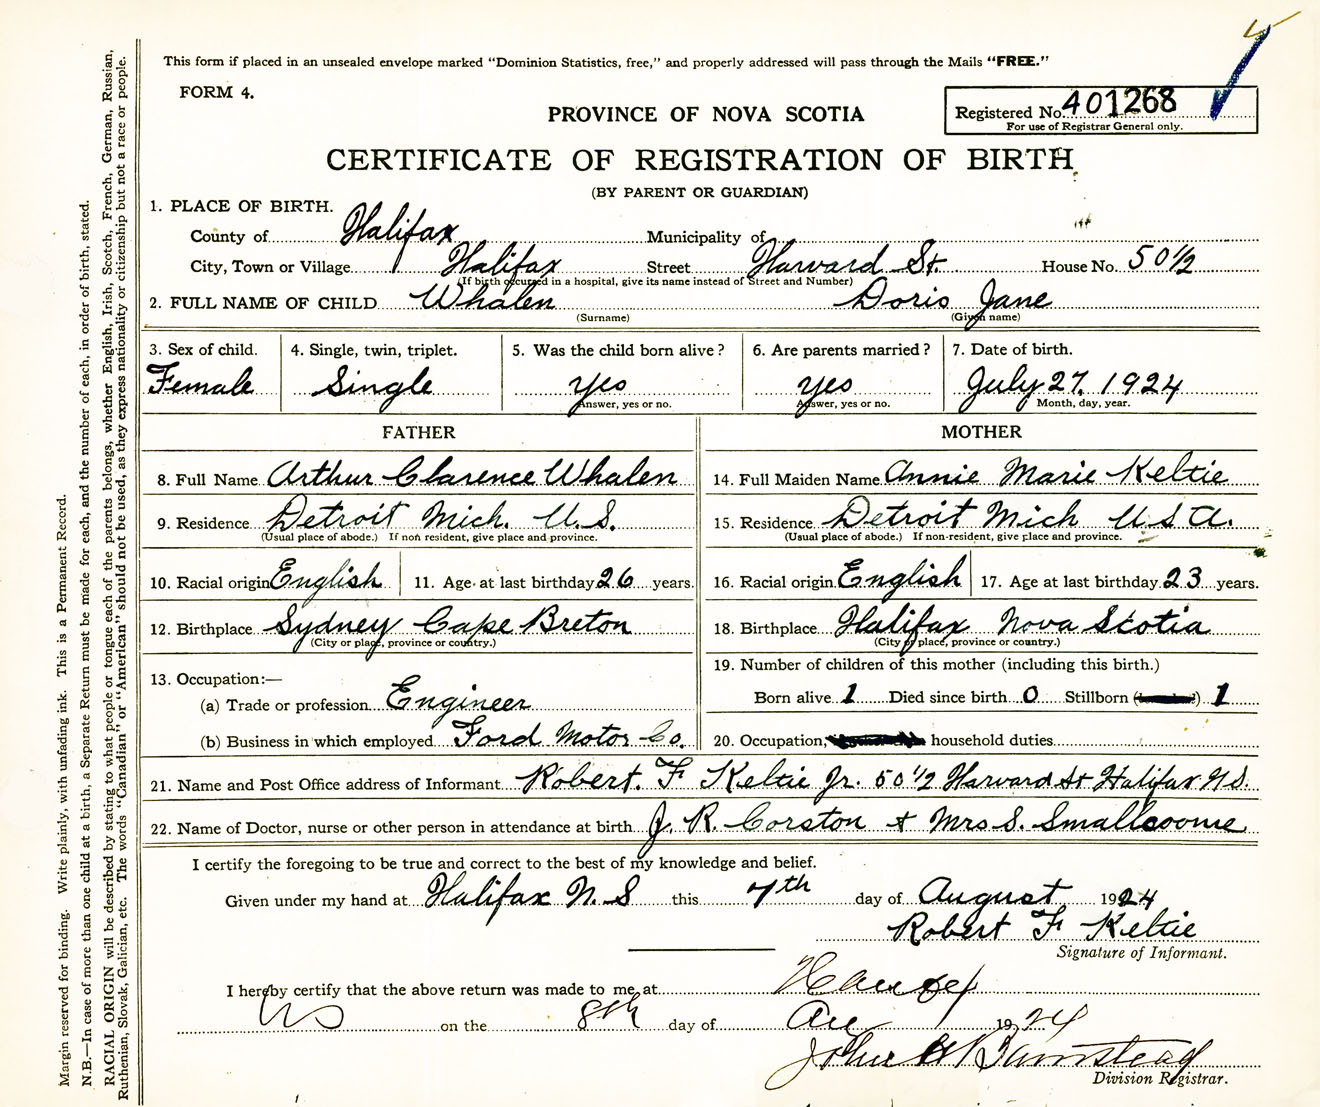 This form if placed in an unsealed envelope marked "Dominion Statistics, free," and properly addressed will pass through the Mails "FREE."
FORM 4.
PROVINCE OF NOVA SCOTIA
Registered No. 401268
For use of Registrar General only.
CERTIFICATE OF REGISTRATION OF BIRTH
(BY PARENT OR GUARDIAN)
1. PLACE OF BIRTH.
County of Halifax Municipality of
City, Town or Village Halifax Street Harvard St. House No. 50 1/2
(If birth occured in a hospital, give its name instead of Street and Number)
2. FULL NAME OF CHILD Whalen Doris Jane
(Surname) (Given name)
3. Sex of child. 4. Single, twin, triplet. 5. Was the child born alive? 6. Are parents married? 7. Date of birth.
Female Single Yes Yes July 27, 1924
Answer, yes or no. Answer, yes or no. Month, day, year.
FATHER MOTHER
8. Full Name Arthur Clarence Whalen 14. Full Maiden Name Annie Marie Keltie
9. Residence Detroit Mich. U.S. 15. Residence Detroit Mich U.S.A.
(Usual place of abode.) If non resident, give place and province. (Usual place of abode.) If non-resident, give place and province.
10. Racial origin English 11. Age at last birthday 26 years. 16. Racial origin English 17. Age at last birthday 23 years.
12. Birthplace Sydney Cape Breton 18. Birthplace Halifax Nova Scotia
(City or place, province or country.) (City or place, province or country.)
13. Occupation:— 19. Number of children of this mother (including this birth.)
(a) Trade or profession Engineer Born alive 1 Died since birth 0 Stillborn 1
(b) Business in which employed Ford Motor Co. 20. Occupation, household duties
21. Name and Post Office address of Informant Robert. F Keltie Jr. 50 1/2 Harvard St Halifax N S.
22. Name of Doctor, nurse or other person in attendance at birth J. R. Corston + Mrs S. Smallcoome
I certify the foregoing to be true and correct to the best of my knowledge and belief.
Given under my hand at Halifax N. S this 7th day of August 1924
Robert F Keltie
Signature of Informant.
I hereby certify that the above return was made to me at
NS on the 8th day of Au 1924
John
Division Registrar.
Margin reserved for binding. Write plainly, with unfading ink. This is a Permanent Record.
N.B.—In case of more than one child at a birth, a Separate Return must be made for each, and the number of each, in order of birth, stated.
RACIAL ORIGIN will be described by stating to what people or tongue each of the parents belongs, whether English, Irish, Scotch, French, German, Russian,
Ruthenian, Slovak, Galician, etc. The words "Canadian" or "American" should not be used, as they express nationality or citizenship but not a race or people.